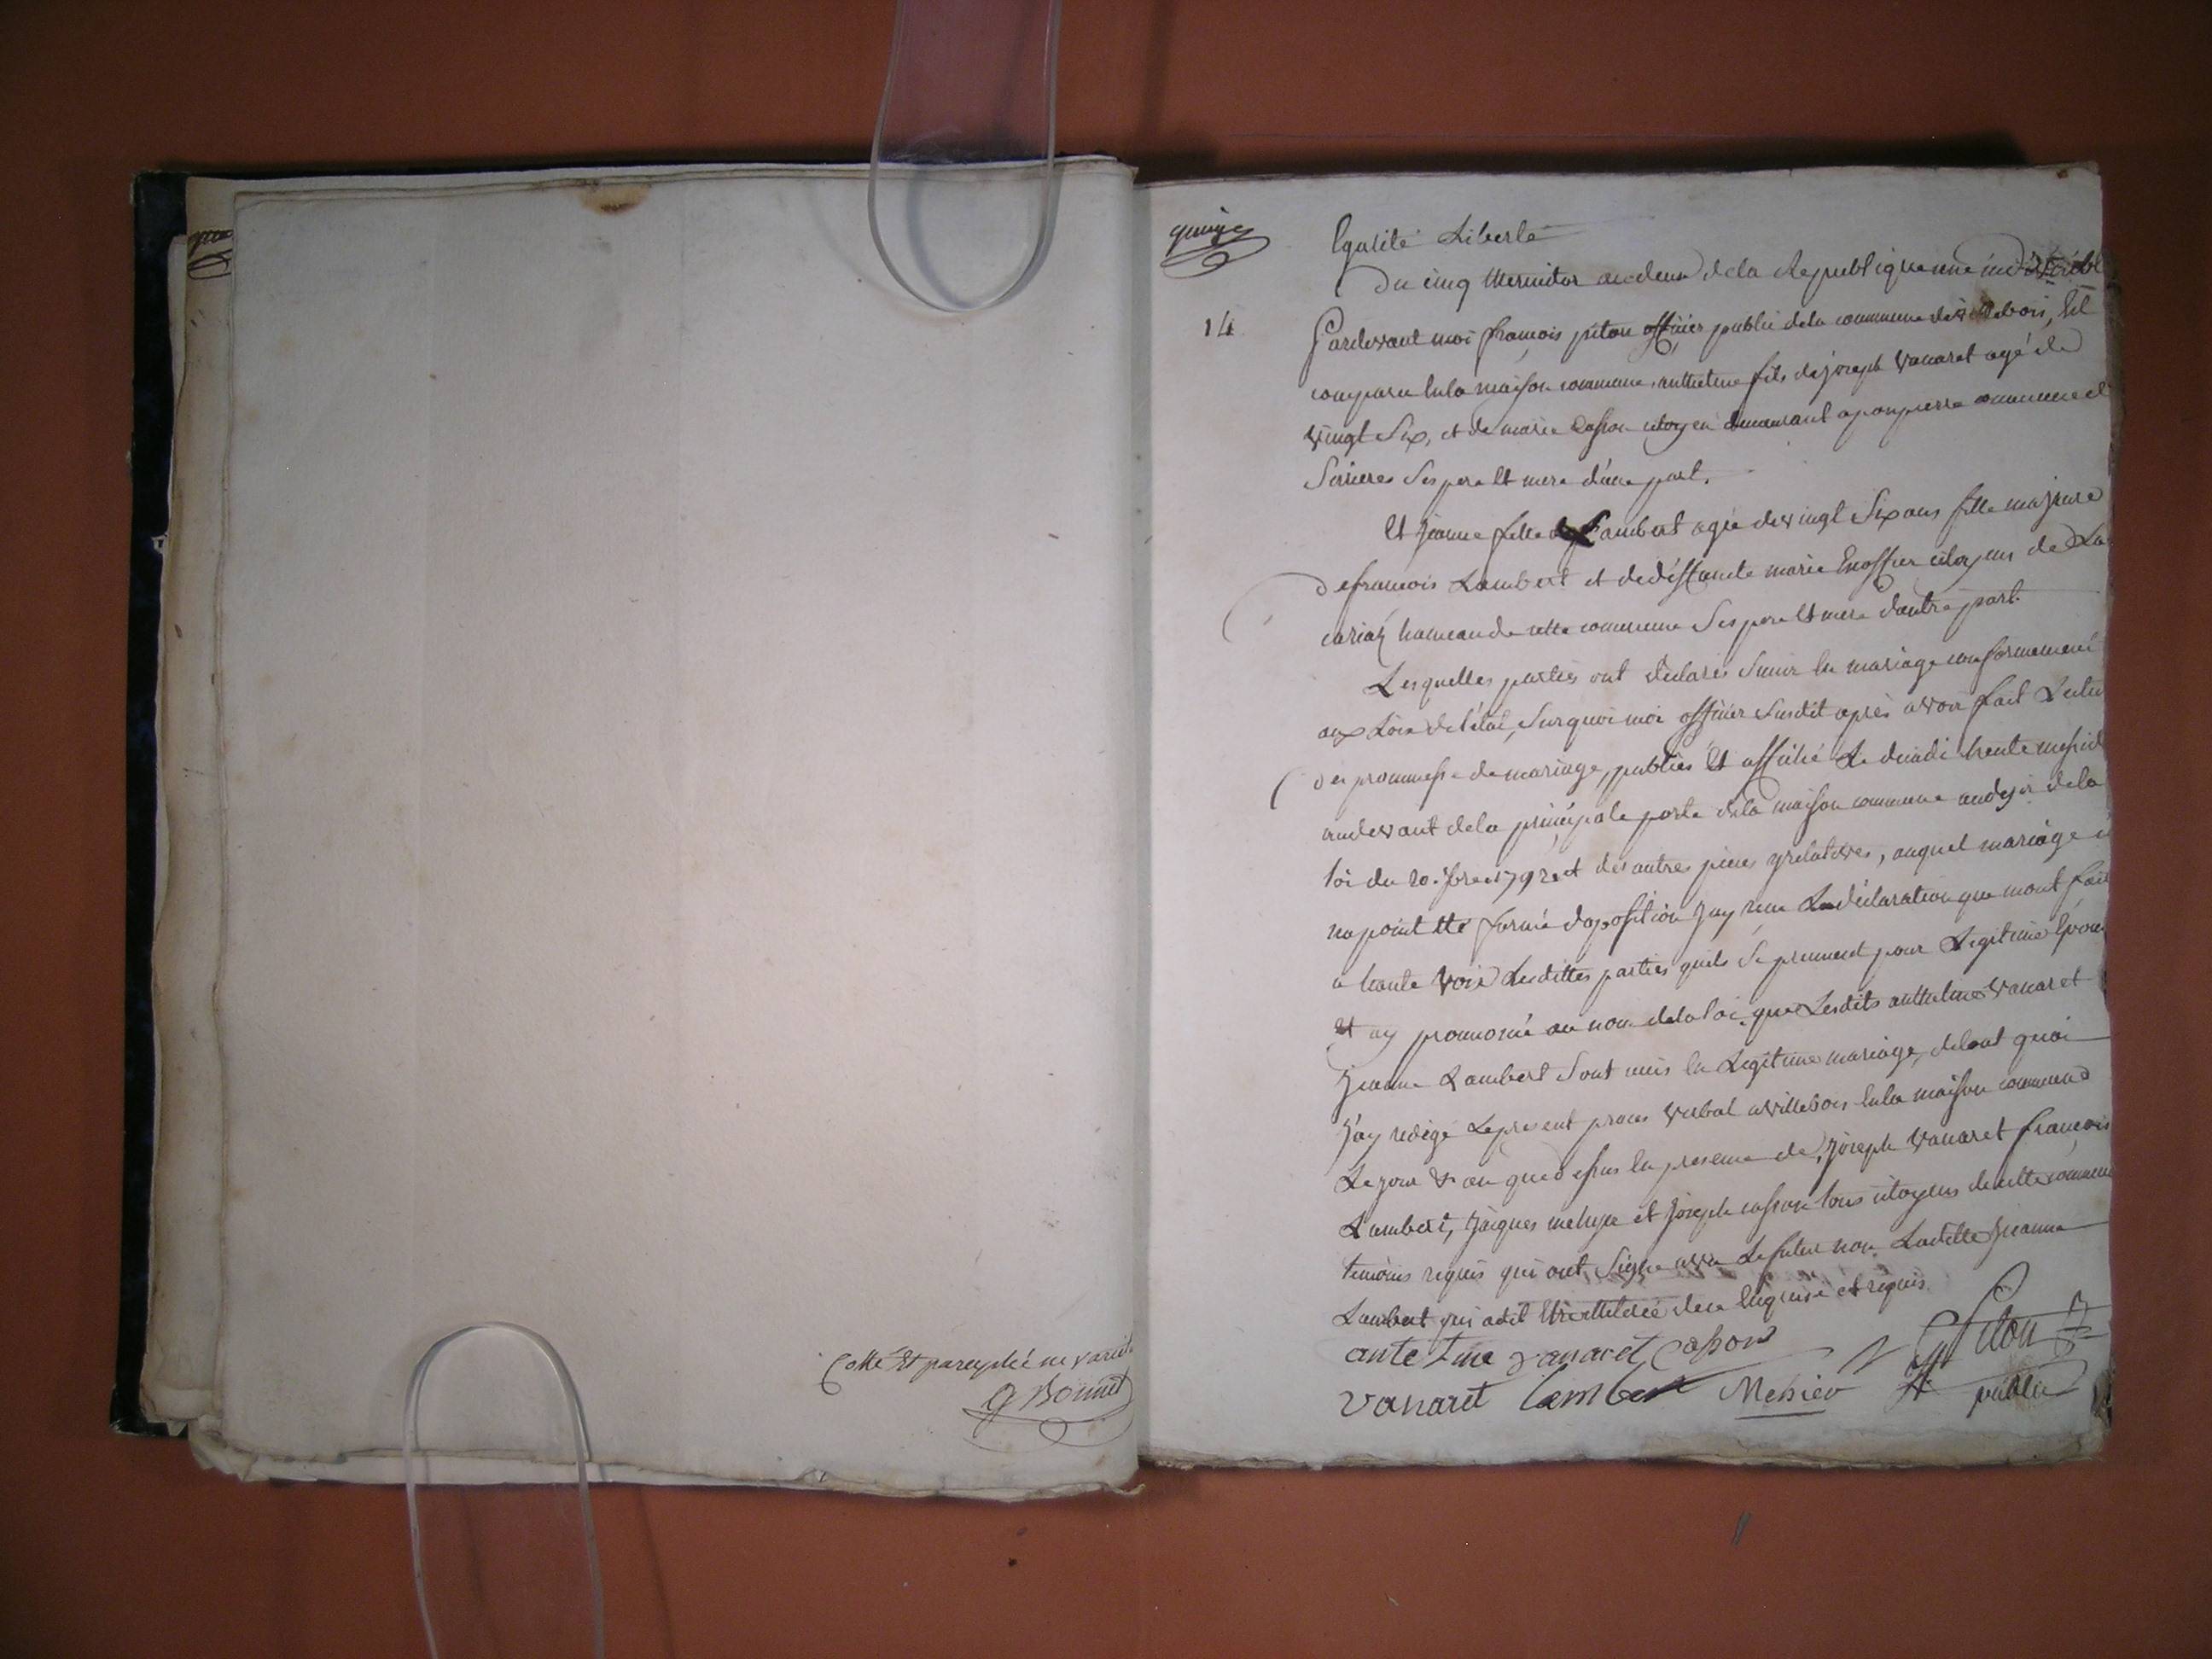 Cotté Et paraphé ne variet
G Bonnet
quinze
Egalité Liberté
Du cinq thermidor an deux de la Republique une indivisibl
14
Pardevant moi françois piton officier public dela commune de villebois, Est
comparu En la maison commune anthelme fils de joseph vanaret agé de
vingt Six, et de marie Casson citoyen demeurant a ponpierre commune d
Serrieres Ses pere Et mere d'une part.
Et jeanne fille de Lambert agée de vingt Six ans fille majeure
de francois Lambert et de deffuncte marie citoyens de La
cariaz hameau de cette commune Ses pere Et mere dautre part.
Lesquelles parties ont declarés Sunir En mariage conformement
aux Loix de l'état, Surquoi moi officier Susdit après avoir fait Lectu
des prommesse de mariage, publiés Et affiché Le decadi trente messid
audevant dela principale porte dela maison commune au desir dela
loi du 20. 7bre 1792 et des autres pieces y relatives, auquel mariage i
na point Eté formé doposition Jay recu La déclaration que mont fait
a haute voix Lesdittes parties quils Se prennent pour Legitime Epoux
Et ay prononcé au nom dela loi que Lesdits anthelme vanaret
Jeanne Lambert Sont unis En Legitime mariage, detout quoi
J'ay redigé Le present proces verbal a villebois En la maison commune
Le jour & an que dessus En presence de, Joseph vanaret françois
Lambert, Jacques et Joseph casson tous citoyens de cette commune
temoins requis qui ont Signé avec Le futur non Laditte Jeanne
Lambert qui a dit Etre illiterée dece Enquise et requis
antelme vanaret Casson Piton
vanaret lambert Messieu public